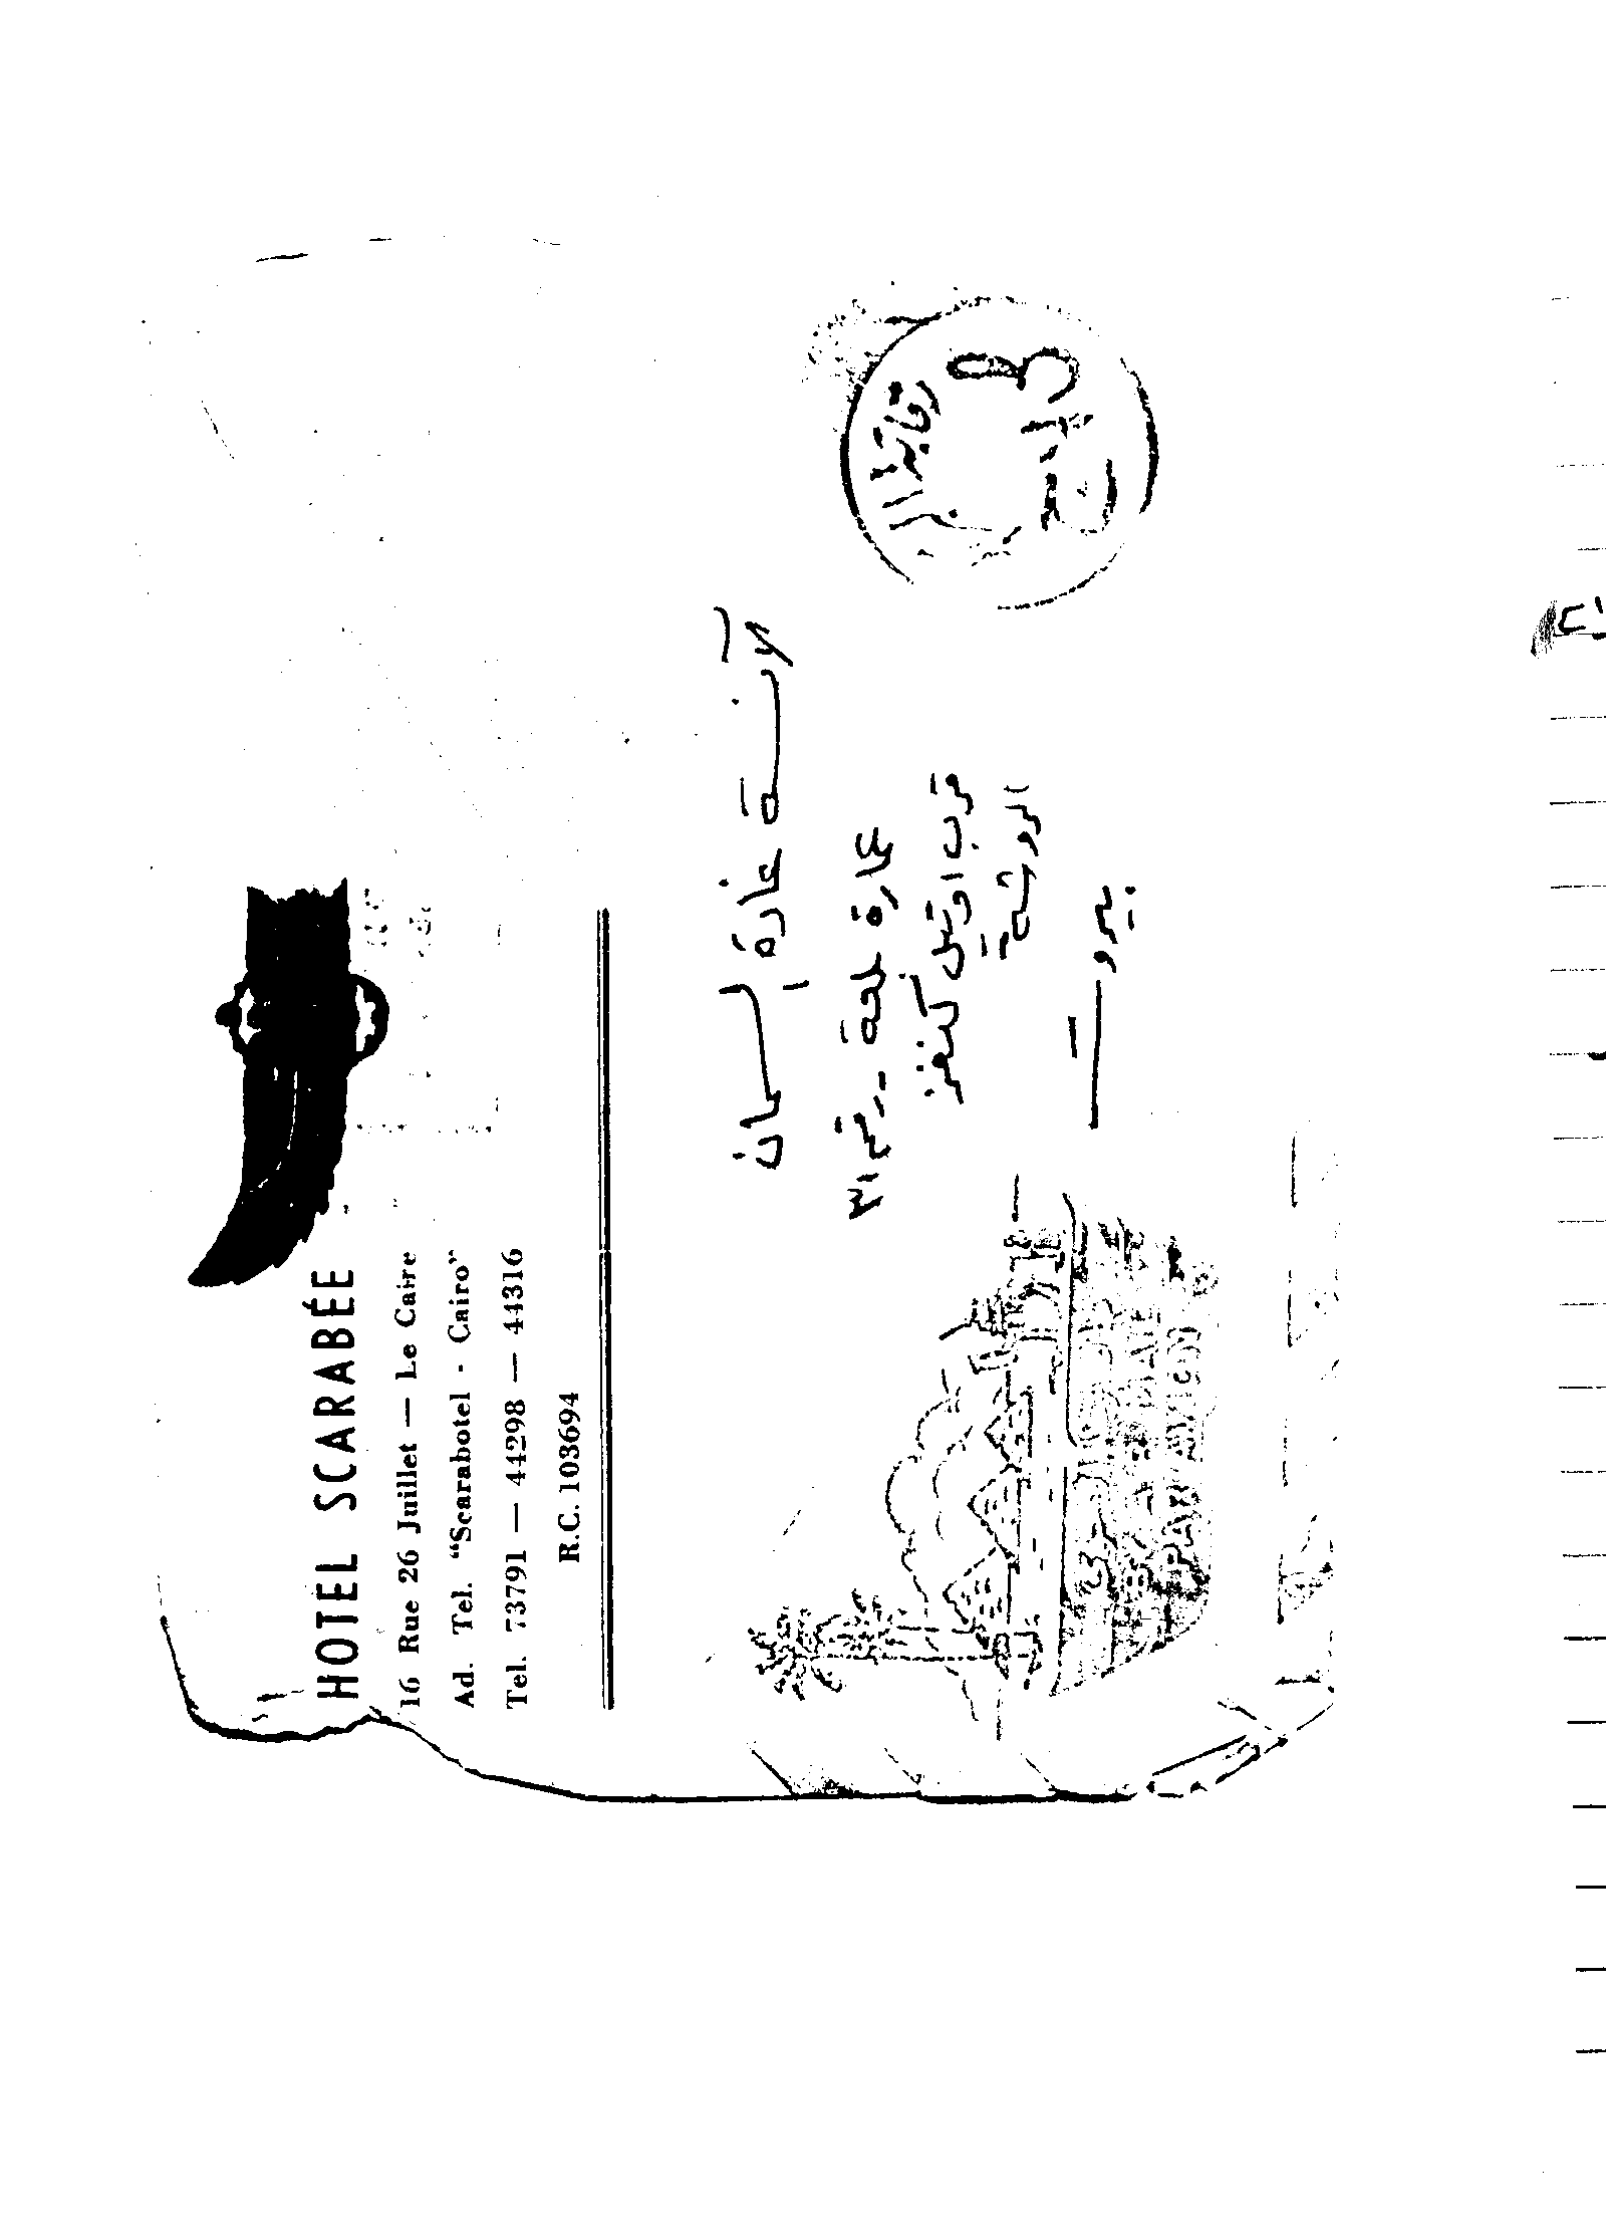 HOTEL SCARABÉE
16 Rue 26 Juillet — Le Caire
Ad. Tel. "Scarabotel - Cairo"
Tel. 73791 — 44298 — 44316
R.C. 103694
الآنسة غادة السمان
عمارة طلعة - رقم ٣١
قرب اوتيل كنغز
الروشة
بيروت
PAR AVION